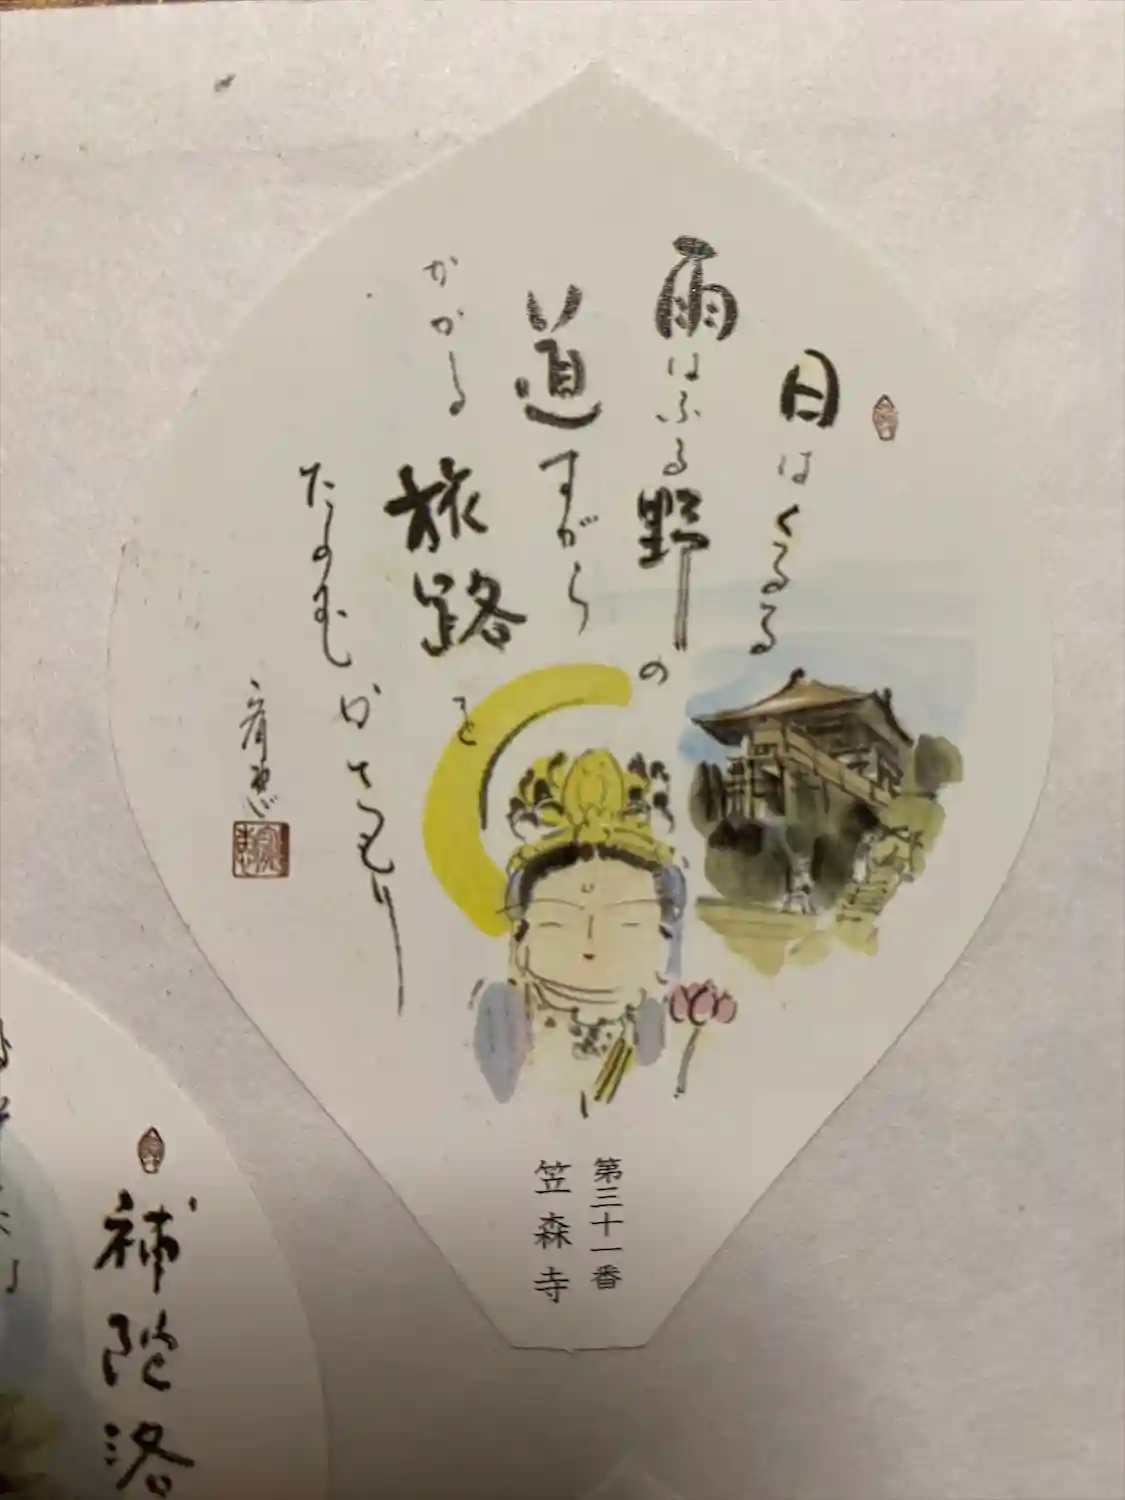 日はくるる
雨はふる野の
道すがら
かかる旅路を
たのむかさもり
第三十一番
笠森寺
補陀洛